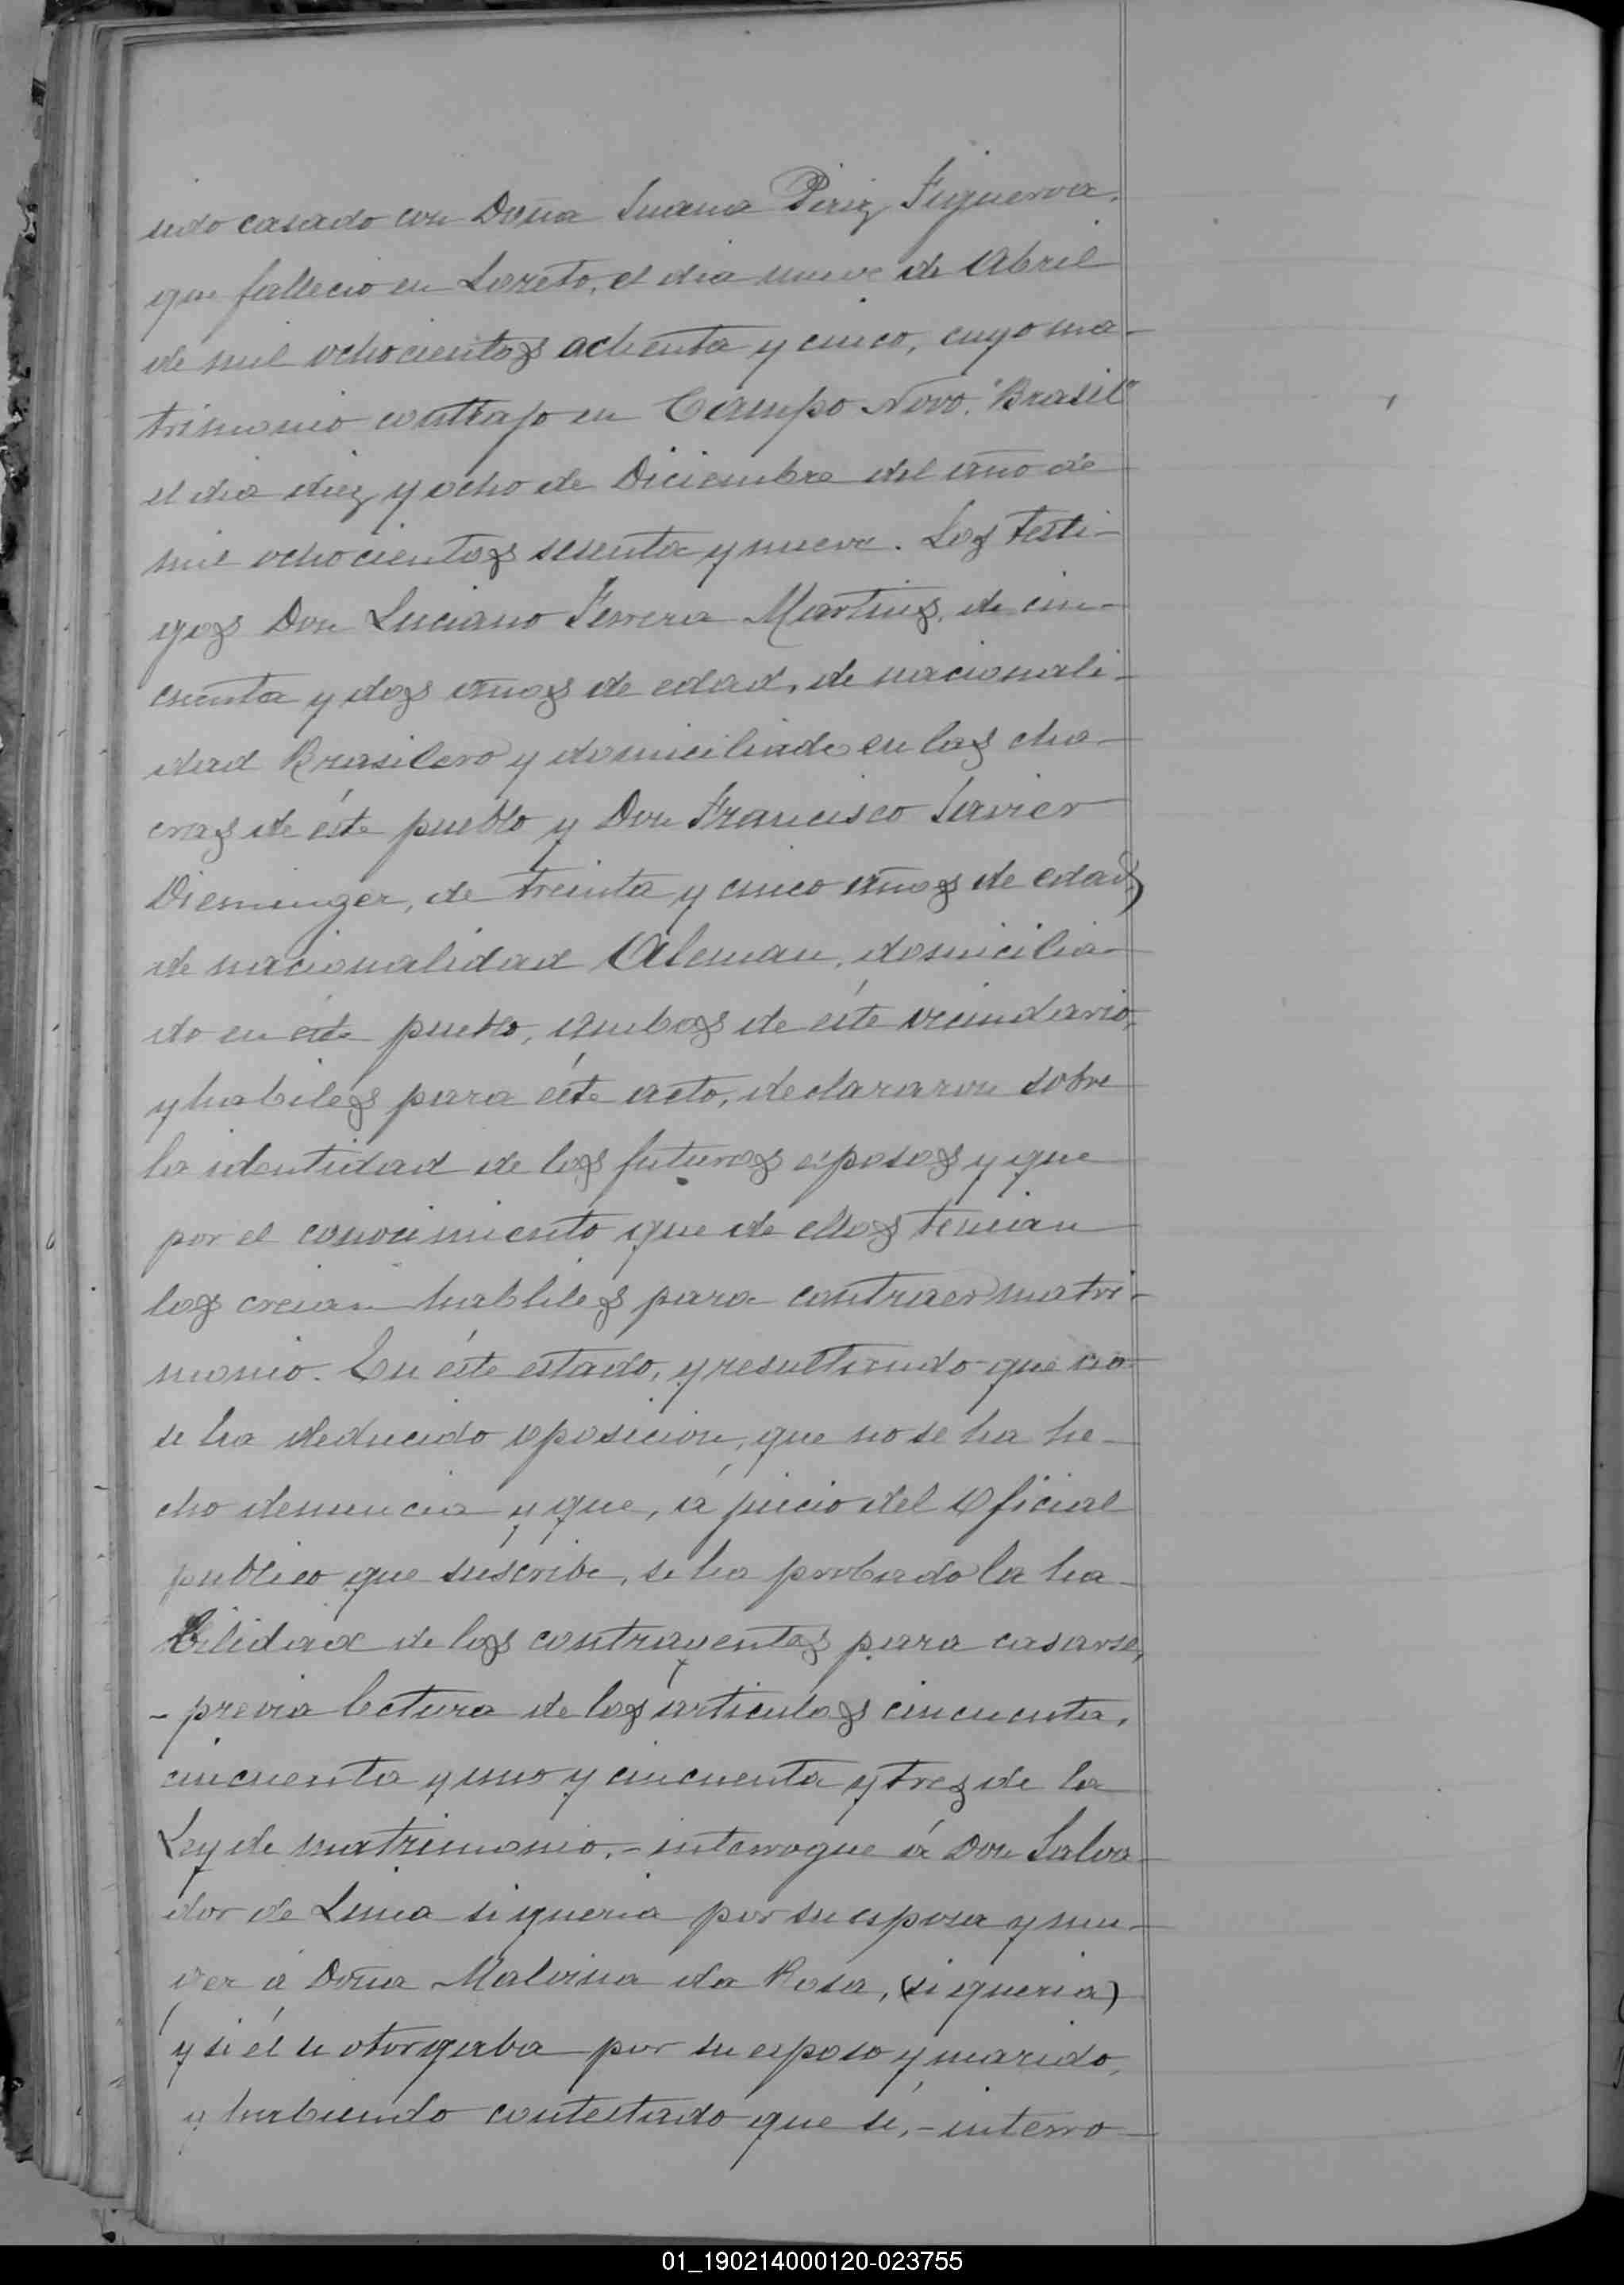 sido casado con Doña Juana Piriz Figueroa,
que fallecio en Loreto, el dia nueve de Abril
de mil ochocientos ochenta y cinco, cuyo ma-
trimonio contrajo en Campo Novo "Brasil"
el dia diez y ocho de Diciembre del año de
mil ochocientos sesenta y nueve. Los testi-
gos Don Luciano Ferrera Martins, de cin-
cuenta y dos años de edad, de nacionali-
dad Brasilero y domiciliado en las cha-
cras de éste pueblo y Don Francisco Javier
Dieminger, de treinta y cinco años de edad,
de nacionalidad Aleman, domicilia-
do en éste pueblo, ambos de éste vecindario,
y habiles para éste acto, declararon sobre
la identidad de los futuros esposos y que
por el conocimiento que de ellos tenian
los creian habliles para contraer matri-
monio. En éste estado, y resultando que no
se ha deducido oposicion, que no se ha he-
cho denuncia y que, á juicio del Oficial
publico que suscribe, se ha probado la ha-
bilidad de los contrayentes para casarse,
- previa lectura de los articulos cincuenta,
cincuenta y uno y cincuenta y tres de la
Ley de matrimonio, - interrogue á Don Salva-
dor de Lima si queria por su esposa y mu-
jer á Doña Malvina da Rosa, (si queria)
y si él se otorgaba por su esposo y marido,
y habiendo contestado que si, - interro-
01_190214000120-023755